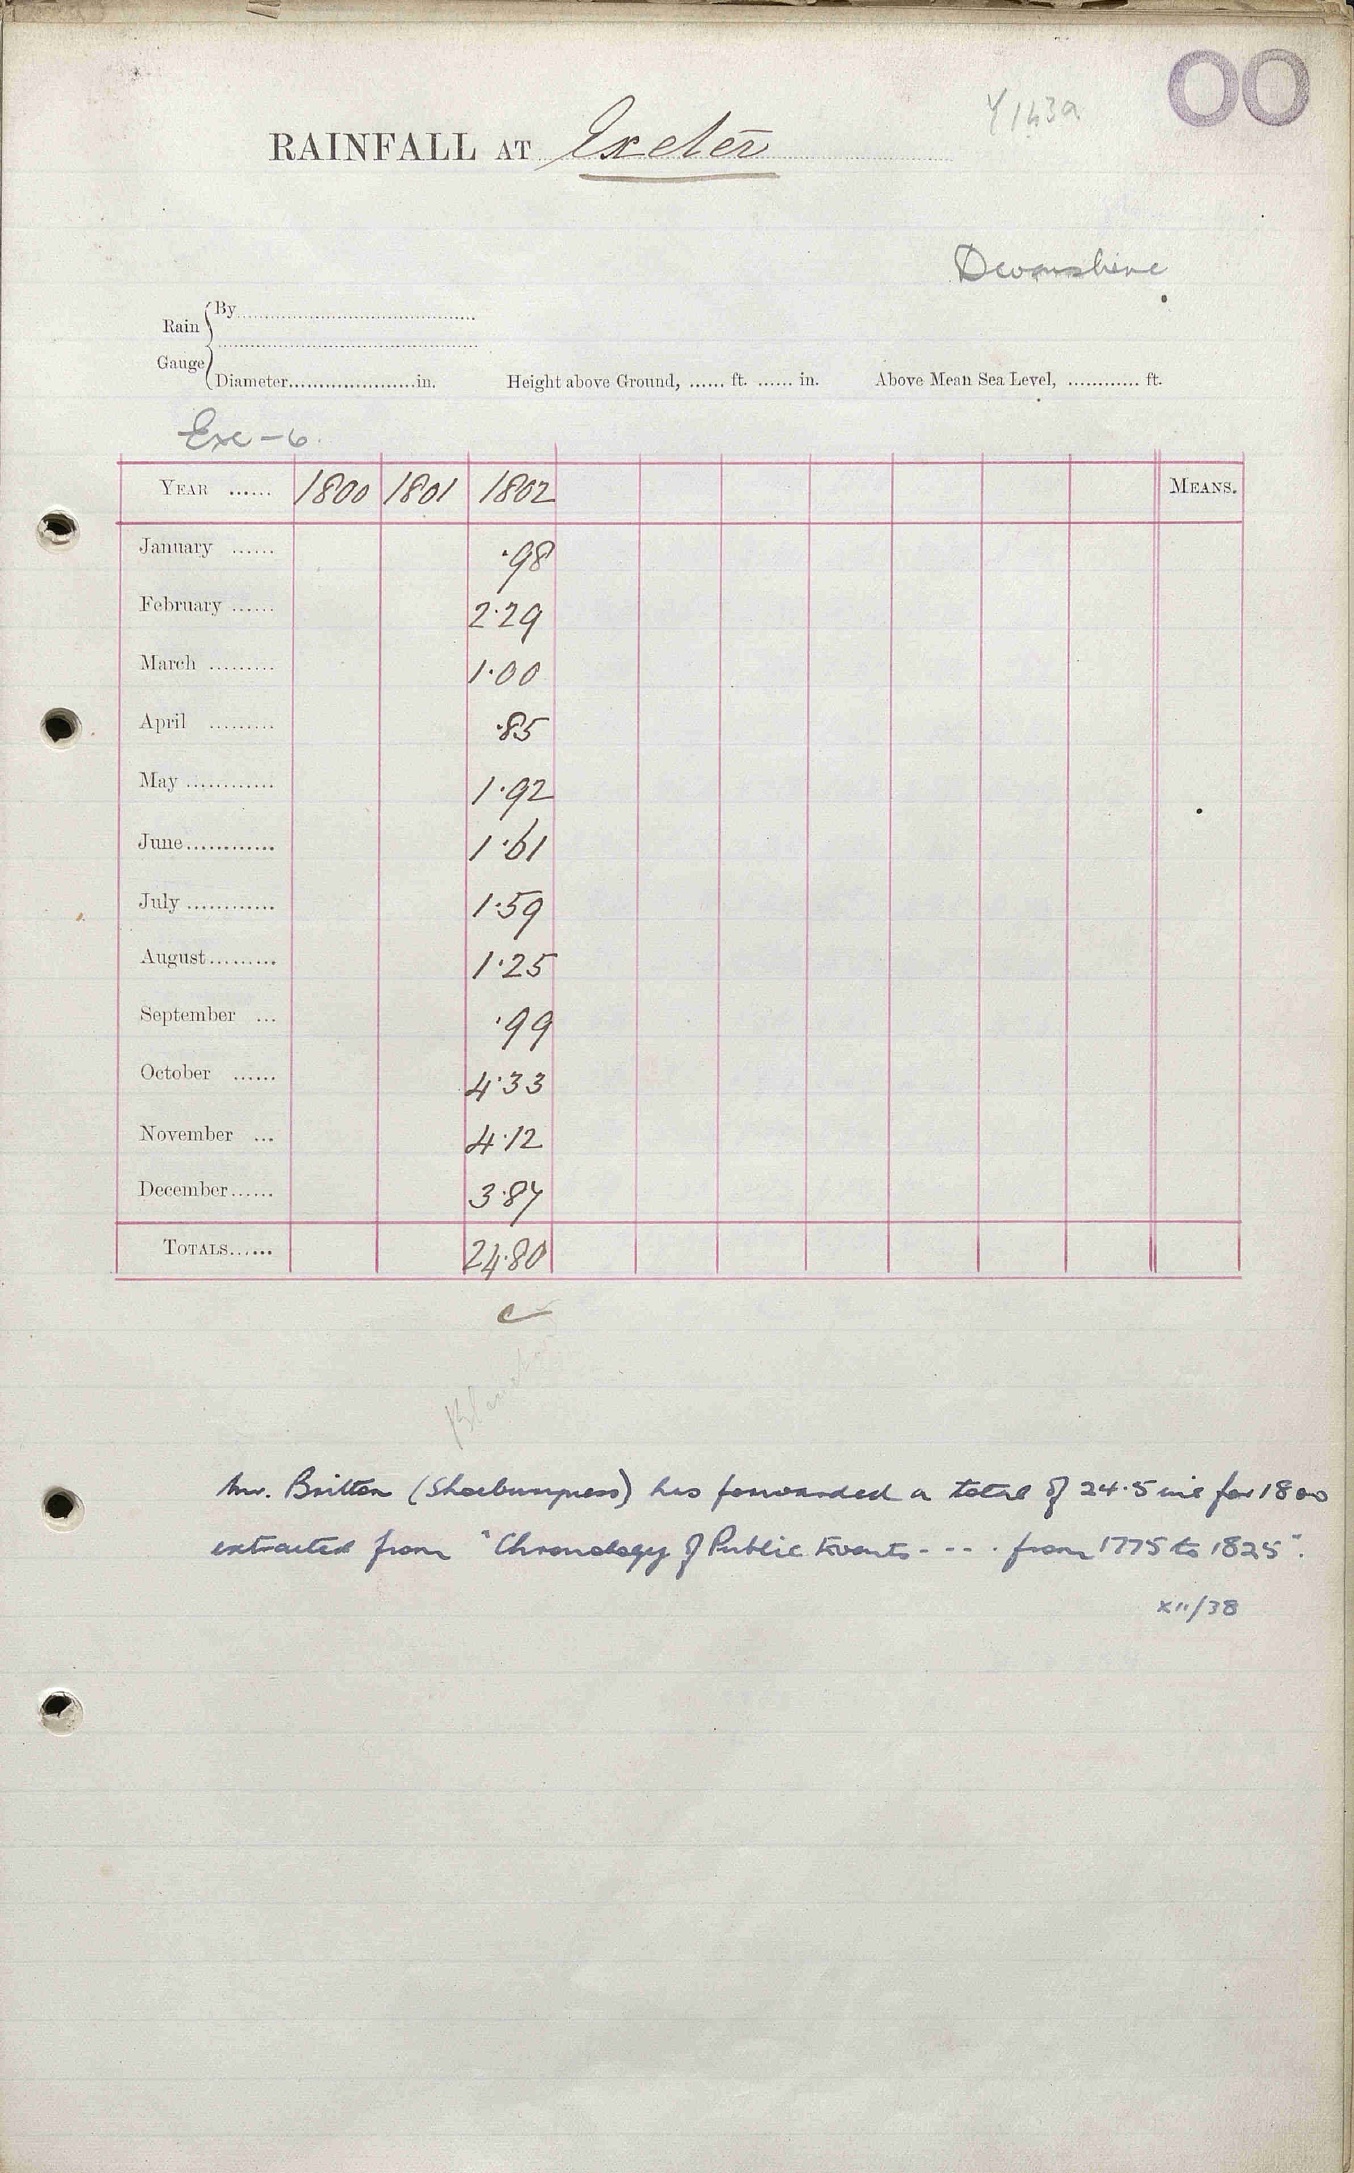 OO
Y143a
RAINFALL AT Exeter
Devonshire
Rain Gauge
By
Diameter.....................in. Height above Ground, ...... ft. ...... in. Above Mean Sea Level, ............ ft.
Exe-6.
YEAR ...... 1800 1801 1802 MEANS.
January ...... .98
February ...... 2.29
March ......... 1.00
April ......... .85
May ............ 1.92
June............ 1.61
July ............ 1.59
August......... 1.25
September ... .99
October ...... 4.33
November ... 4.12
December...... 3.87
TOTALS...... 24.80
c
Mr. Britton (Shoeburyness) has forwarded a total of 24.5 ins for 1800
extracted from "Chronology of Public Events - - - . from 1775 to 1825".
XII/38